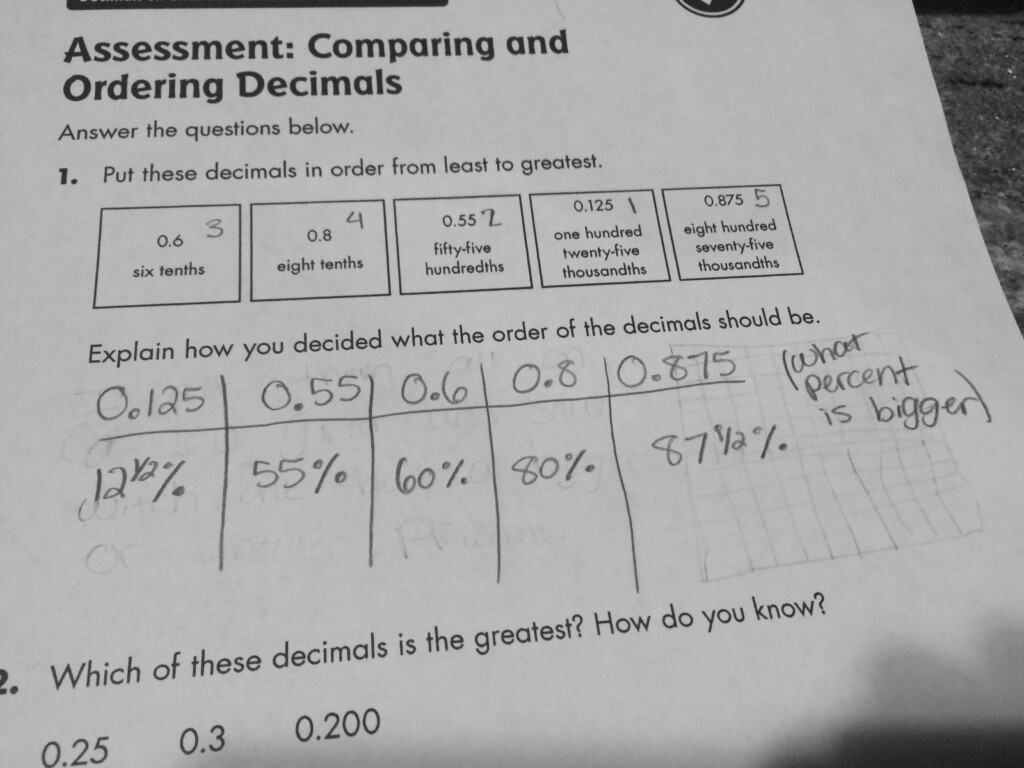 Assessment: Comparing and
Ordering Decimals
Answer the questions below.
1. Put these decimals in order from least to greatest.
0.6 3
six tenths
0.8 4
eight tenths
0.55 2
fifty-five
hundredths
0.125 1
one hundred
twenty-five
thousandths
0.875 5
eight hundred
seventy-five
thousandths
Explain how you decided what the order of the decimals should be.
0.125 0.55 0.6 0.8 0.875 (what
percent
is bigger)
12 1/2% 55% 60% 80% 87 1/2%
2. Which of these decimals is the greatest? How do you know?
0.25 0.3 0.200